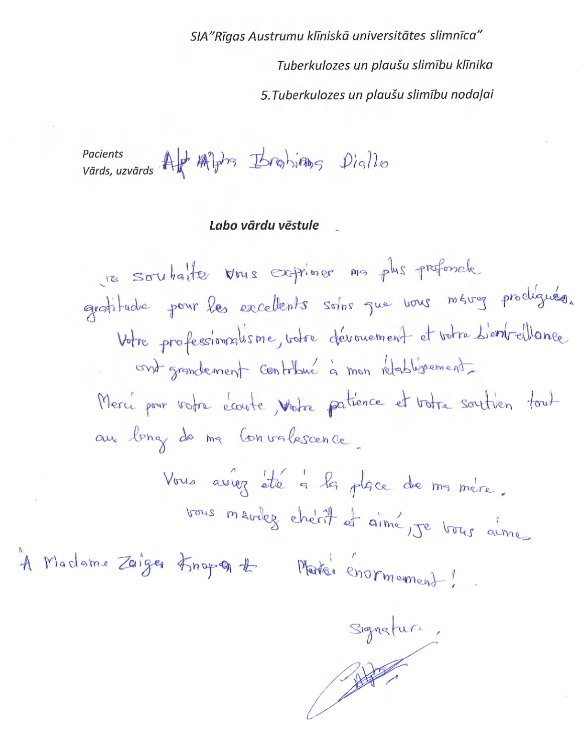 SIA"Rīgas Austrumu klīniskā universitātes slimnīca"
Tuberkulozes un plaušu slimību klīnika
5.Tuberkulozes un plaušu slimību nodaļai
Pacients
Vārds, uzvārds Alpha Ibrahima Diallo
Labo vārdu vēstule
je souhaite vous exprimer ma plus profonde
gratitude pour les excellents soins que vous m'avez prodigués.
Votre professionnalisme, votre dévouement et votre bienveillance
ont grandement contribué à mon rétablissement.
Merci pour votre écoute, votre patience et votre soutien tout
au long de ma Convalescence.
Vous aviez été à la place de ma mère.
vous m'aviez chérit et aimé, je vous aime
À Madame Zaiga Merci énormement !
Signature.